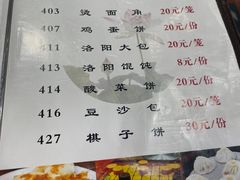 403 烫面角 20元/笼
407 鸡蛋饼 20元/份
411 洛阳大包 20元/笼
413 洛阳馄饨 8元/份
414 酸菜饼 20元/份
416 豆沙包 20元/笼
427 棋子饼 30元/份